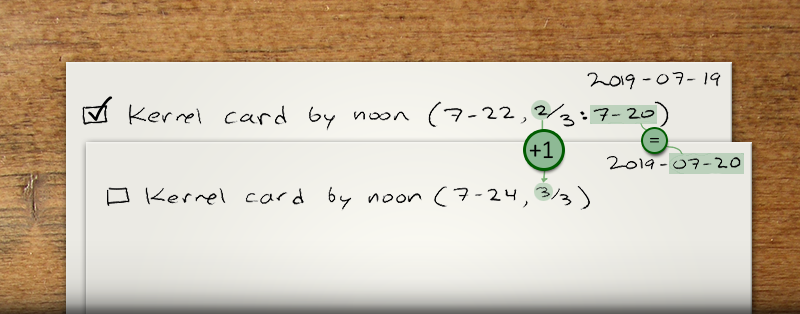 2019-07-19
Kernel card by noon (7-22, 2/3: 7-20)
+1
=
2019-07-20
Kernel card by noon (7-24, 3/3)